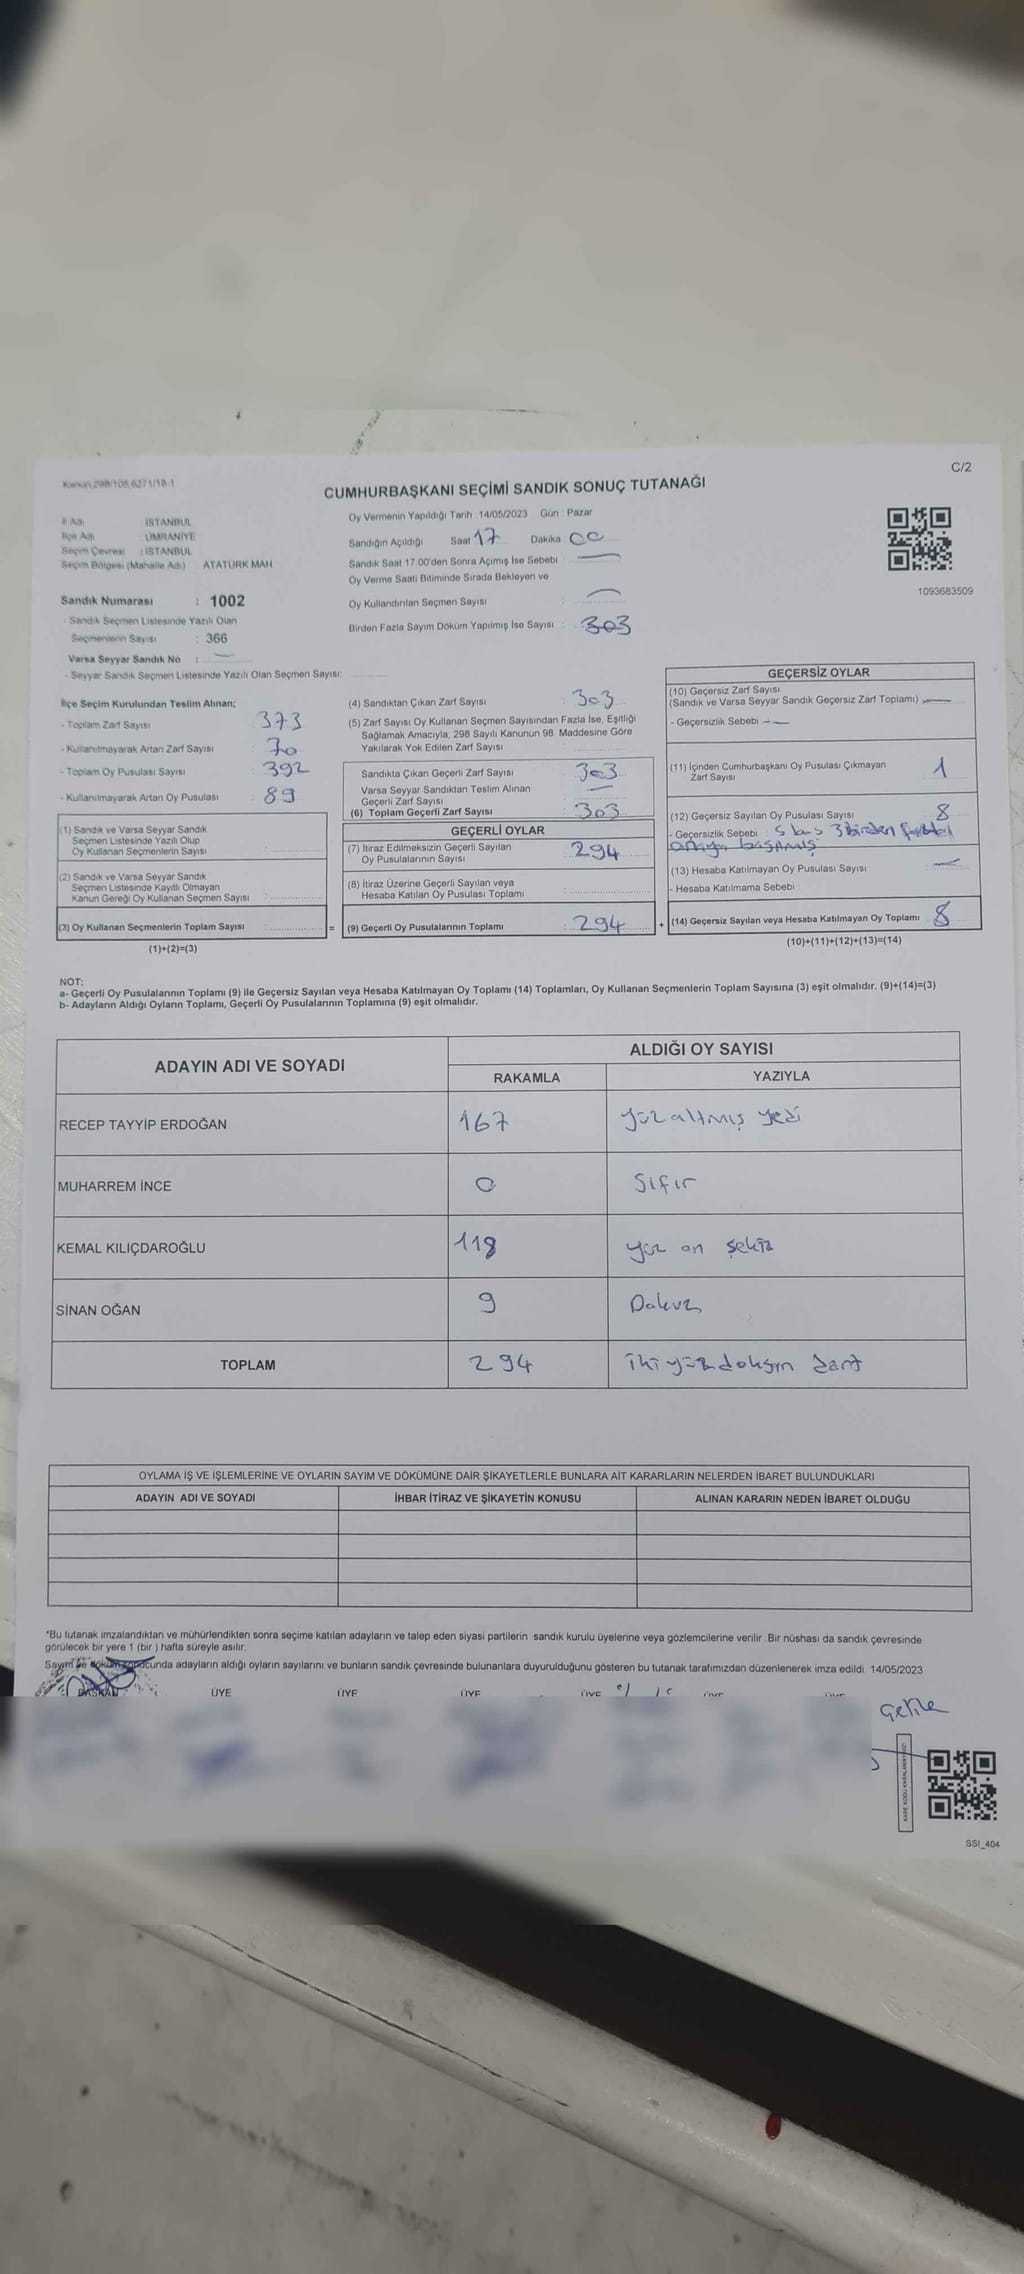 Kanun:298/105,6271/18-1
C/2
CUMHURBAŞKANI SEÇİMİ SANDIK SONUÇ TUTANAĞI
İl Adı : İSTANBUL
İlçe Adı : ÜMRANİYE
Seçim Çevresi : İSTANBUL
Seçim Bölgesi (Mahalle Adı) ATATÜRK MAH
Sandık Numarası : 1002
- Sandık Seçmen Listesinde Yazılı Olan
Seçmenlerin Sayısı : 366
Varsa Seyyar Sandık No :
- Seyyar Sandık Seçmen Listesinde Yazılı Olan Seçmen Sayısı:
Oy Vermenin Yapıldığı Tarih : 14/05/2023 Gün : Pazar
Sandığın Açıldığı Saat 17 Dakika 00
Sandık Saat 17:00'den Sonra Açımış İse Sebebi :
Oy Verme Saati Bitiminde Sırada Bekleyen ve
Oy Kullandırılan Seçmen Sayısı :
Birden Fazla Sayım Döküm Yapılmış İse Sayısı : 303
1093683509
İlçe Seçim Kurulundan Teslim Alınan;
- Toplam Zarf Sayısı : 373
- Kullanılmayarak Artan Zarf Sayısı : 70
- Toplam Oy Pusulası Sayısı : 392
- Kullanılmayarak Artan Oy Pusulası : 89
(1) Sandık ve Varsa Seyyar Sandık
Seçmen Listesinde Yazılı Olup
Oy Kullanan Seçmenlerin Sayısı :
(2) Sandık ve Varsa Seyyar Sandık
Seçmen Listesinde Kayıtlı Olmayan
Kanun Gereği Oy Kullanan Seçmen Sayısı :
(3) Oy Kullanan Seçmenlerin Toplam Sayısı : =
(1)+(2)=(3)
(4) Sandıktan Çıkan Zarf Sayısı : 303
(5) Zarf Sayısı Oy Kullanan Seçmen Sayısından Fazla İse, Eşitliği
Sağlamak Amacıyla, 298 Sayılı Kanunun 98. Maddesine Göre
Yakılarak Yok Edilen Zarf Sayısı :
Sandıkta Çıkan Geçerli Zarf Sayısı : 303
Varsa Seyyar Sandıktan Teslim Alınan
Geçerli Zarf Sayısı :
(6) Toplam Geçerli Zarf Sayısı : 303
GEÇERLİ OYLAR
(7) İtiraz Edilmeksizin Geçerli Sayılan
Oy Pusulalarının Sayısı : 294
(8) İtiraz Üzerine Geçerli Sayılan veya
Hesaba Katılan Oy Pusulası Toplamı :
(9) Geçerli Oy Pusulalarının Toplamı : 294 +
GEÇERSİZ OYLAR
(10) Geçersiz Zarf Sayısı
(Sandık ve Varsa Seyyar Sandık Geçersiz Zarf Toplamı)
- Geçersizlik Sebebi :
(11) İçinden Cumhurbaşkanı Oy Pusulası Çıkmayan
Zarf Sayısı 1
(12) Geçersiz Sayılan Oy Pusulası Sayısı : 8
- Geçersizlik Sebebi : 5 boş 3 birden
basılmış
(13) Hesaba Katılmayan Oy Pusulası Sayısı :
- Hesaba Katılmama Sebebi :
(14) Geçersiz Sayılan veya Hesaba Katılmayan Oy Toplamı : 8
(10)+(11)+(12)+(13)=(14)
NOT:
a- Geçerli Oy Pusulalarının Toplamı (9) ile Geçersiz Sayılan veya Hesaba Katılmayan Oy Toplamı (14) Toplamları, Oy Kullanan Seçmenlerin Toplam Sayısına (3) eşit olmalıdır. (9)+(14)=(3)
b- Adayların Aldığı Oyların Toplamı, Geçerli Oy Pusulalarının Toplamına (9) eşit olmalıdır.
ADAYIN ADI VE SOYADI ALDIĞI OY SAYISI
RAKAMLA YAZIYLA
RECEP TAYYİP ERDOĞAN 167 yüz altmış yedi
MUHARREM İNCE 0 Sıfır
KEMAL KILIÇDAROĞLU 118 yüz on şekiz
SİNAN OĞAN 9 Dokuz
TOPLAM 294 iki yüz doksan dört
OYLAMA İŞ VE İŞLEMLERİNE VE OYLARIN SAYIM VE DÖKÜMÜNE DAİR ŞİKAYETLERLE BUNLARA AİT KARARLARIN NELERDEN İBARET BULUNDUKLARI
ADAYIN ADI VE SOYADI İHBAR İTİRAZ VE ŞİKAYETİN KONUSU ALINAN KARARIN NEDEN İBARET OLDUĞU
*Bu tutanak imzalandıktan ve mühürlendikten sonra seçime katılan adayların ve talep eden siyasi partilerin sandık kurulu üyelerine veya gözlemcilerine verilir. Bir nüshası da sandık çevresinde
görülecek bir yere 1 (bir ) hafta süreyle asılır.
Sayım ve döküm sonucunda adayların aldığı oyların sayılarını ve bunların sandık çevresinde bulunanlara duyurulduğunu gösteren bu tutanak tarafımızdan düzenlenerek imza edildi. 14/05/2023
BAŞKAN ÜYE ÜYE ÜYE ÜYE ÜYE ÜYE
SSI_404